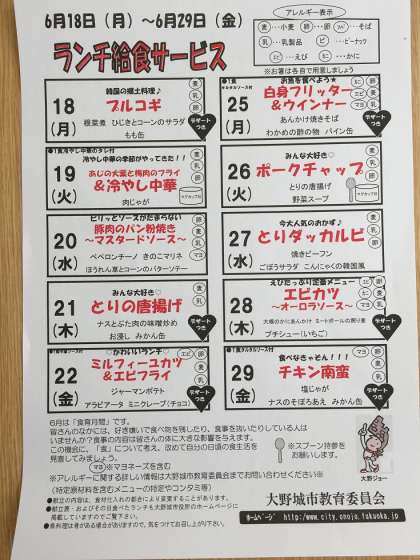 6月18日（月）～6月29日（金）
ランチ給食サービス
アレルギー表示
麦…小麦 卵…卵 そば…そば
乳…乳製品 ピ…ピーナッツ
エビ…えび カニ…かに
※お箸は各自で用意しましょう
18
（月）
韓国の郷土料理♪
プルコギ
根菜煮 ひじきとコーンのサラダ
もも缶
25
（月）
●1食
タルタルソース付
お魚を食べよう★
白身フリッター
＆ウインナー
あんかけ焼きそば
わかめの酢の物 パイン缶
デザートつき
19
（火）
●1食冷やし中華のタレ付
冷やし中華の季節がやってきた！！
あじの大葉と梅肉のフライ
＆冷やし中華
肉じゃが
マグカップ付
26
（火）
みんな大好き♡
ポークチャップ
とりの唐揚げ
野菜スープ
マグカップ付
20
（水）
ピリッとソースがたまらない
豚肉のパン粉焼き
～マスタードソース～
ペペロンチーノ きのこマリネ
ほうれん草とコーンのバターソテー
27
（水）
今大人気のおかず♪
とりダッカルビ
焼きビーフン
ごぼうサラダ こんにゃくの韓国風
21
（木）
みんな大好き♡
とりの唐揚げ
ナスとぶた肉の味噌炒め
お浸し みかん缶
デザートつき
28
（木）
えびたっぷり定番メニュー
エビカツ
～オーロラソース～
大根のかにあんかけ ミートボールの照り煮
プチシュー（いちご）
デザートつき
22
（金）
♡かわいいランチ♡
ミルフィーユカツ
＆エビフライ
ジャーマンポテト
アラビアータ ミニクレープ（チョコ）
デザートつき
29
（金）
●1食タルタルソース付
食べなきゃそん！！！
チキン南蛮
塩じゃが
ナスのそぼろあえ みかん缶
デザートつき
6月は「食育月間」です。
皆さんのなかには、好き嫌いで食べ物を残したり、食事を抜いたりしている人は
いませんか？食事の内容は皆さんの体に大きな影響を与えます。
この機会に、「食」について考え、改めて自分の日頃の食生活を
見直してみましょう。
※スプーン持参を
お願いします。
大野ジョー
マヨ ※マヨネーズを含む
※アレルギーに関する詳しい情報は大野城市教育委員会までお問い合わせください※
（特定原材料を含むメニューの特定やコンタミ等）
●献立の内容は、食材仕入れの都合により変更することがあります。
●献立表・およびその日食べたランチも大野城市役所のホームページに
掲載していますのでご覧下さい。
●魚料理は骨がある場合がありますので、気をつけてお召し上がり下さい。
大野城市教育委員会
ホームページ http://www.city.onojo.fukuoka.jp